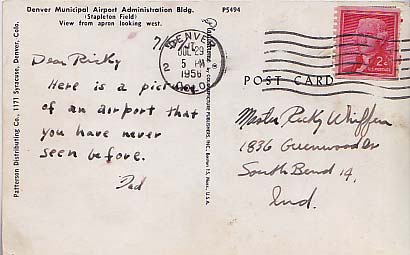 Denver Municipal Airport Administration Bldg.
(Stapleton Field)
View from apron looking west.
P5494
Patterson Distributing Co., 1171 Syracuse, Denver, Colo.
Dear Ricky
Here is a picture
of an airport that
you have never
seen before.
Dad
DENVER
JUL 29
5 PM
1956
COLO.
2¢
POST CARD
Master Ricky Whiffen
1836 Greenwood Dr
South Bend 14,
Ind.